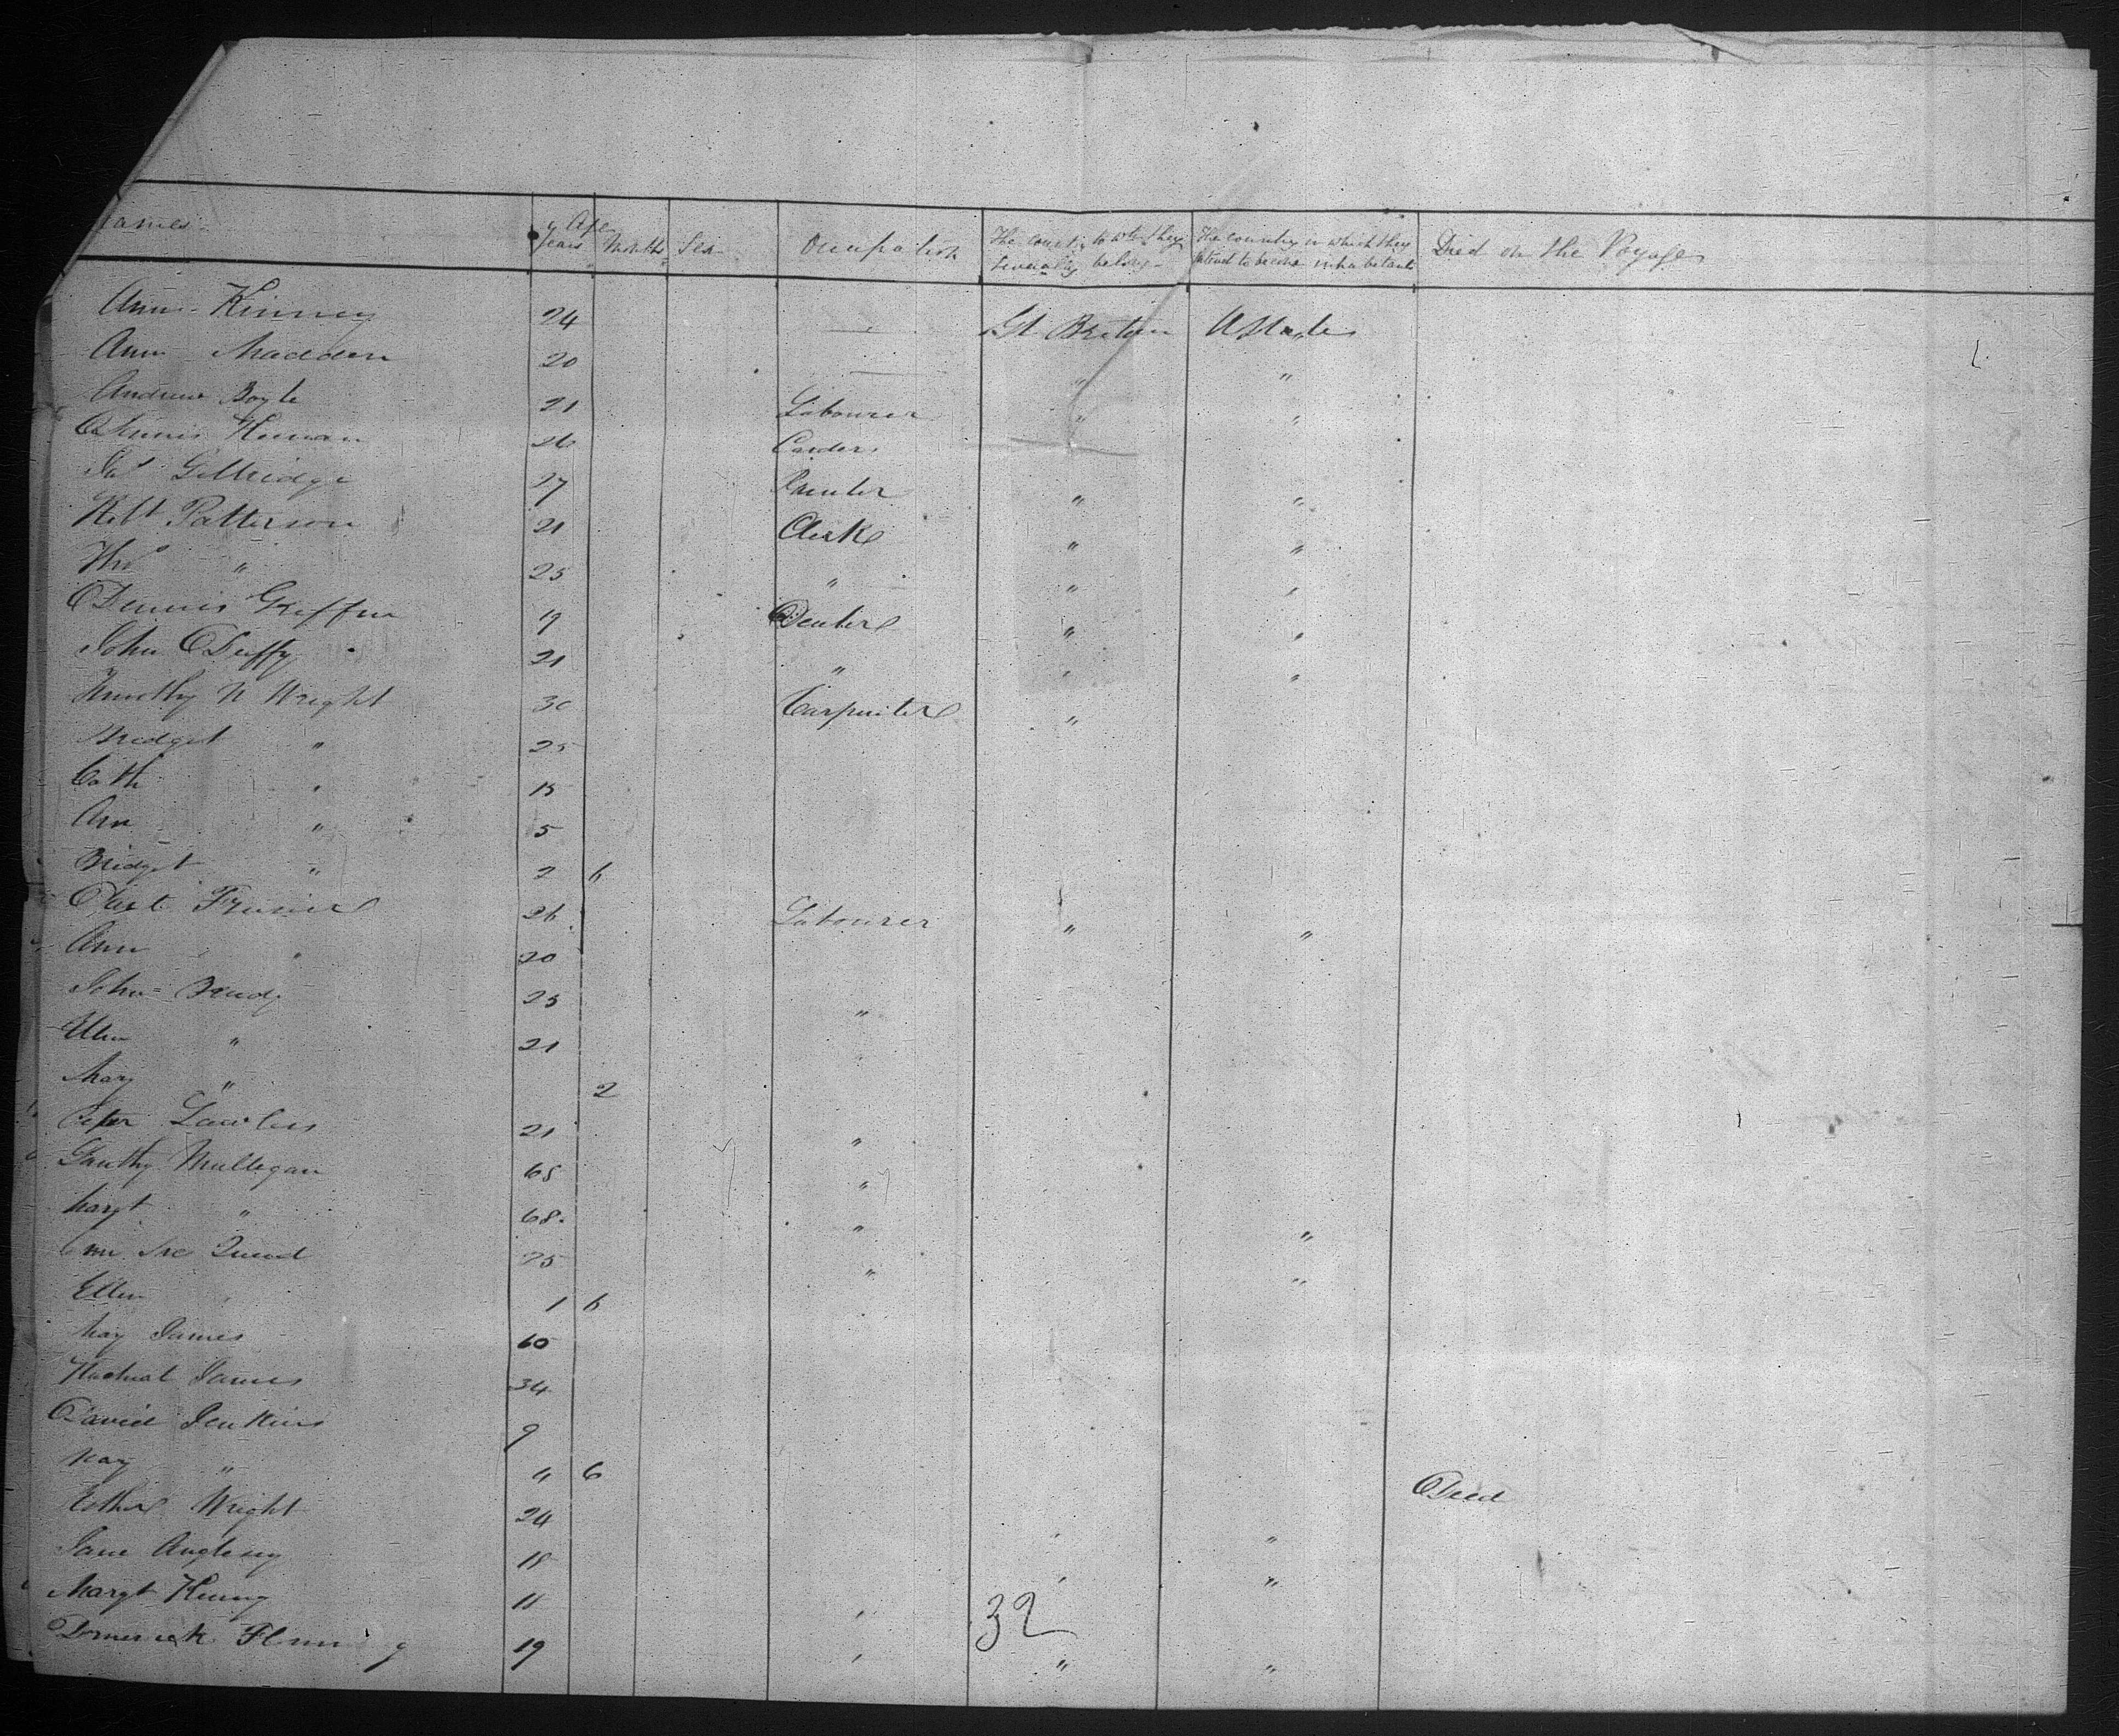 Names Age Years Months Sex Occupation The country to which they severally belong The country in which they intend to become inhabitants Died on the Voyage
Ann Kinney 24 Gt Britain U States
Ann Madden 20 " "
Andrew Boyle 21 Labourer " "
Dennis 26
Jas 27 " "
Robt Patterson 21 Clerk " "
" 25 " " "
Dennis Griffin 19 " "
John Duffy 21 " " "
Timothy Wright 30 Carpenter "
Bridget " 25
Cath " 15
Ann " 5
Bridget " 2 6
26 Labourer " "
Ann " 20
John 25 "
Ellen " 21
Mary " 2
Peter Lawless 21 "
Mulligan 65 "
Margt " 68 " "
25 " "
Ellen " 1 6
May James 60
James 34
David Jenkins 9
May " " 6 Died
Esther Wright 24 " "
Jane Anglesey 18 " "
Margt 11 " 32
Domenick Fleming 19 " " "